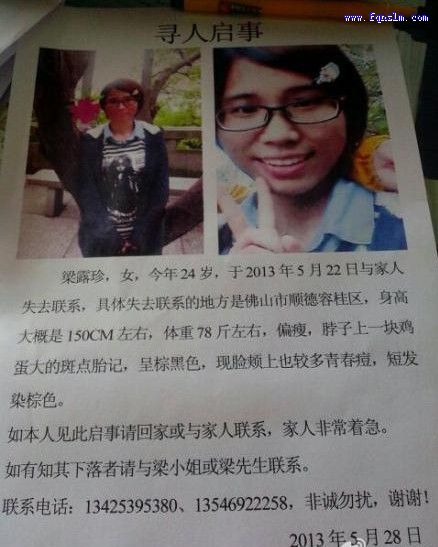 www.fgnslm.com
寻人启事
梁露珍，女，今年24岁，于2013年5月22日与家人
失去联系，具体失去联系的地方是佛山市顺德容桂区，身高
大概是150CM左右，体重78斤左右，偏瘦，脖子上一块鸡
蛋大的斑点胎记，呈棕黑色，现脸颊上也较多青春痘，短发
染棕色。
如本人见此启事请回家或与家人联系，家人非常着急。
如有知其下落者请与梁小姐或梁先生联系。
联系电话：13425395380、13546922258，非诚勿扰，谢谢！
2013年5月28日